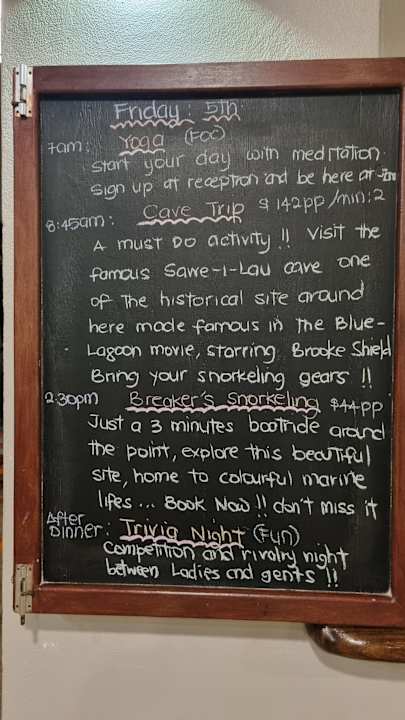 Friday : 5th
7am: Yoga (FOC)
Start your day with meditation.
Sign up at reception and be here at 7am
8:45am: Cave Trip $142pp/min:2
A must Do activity !! Visit the
famous Sawe-I-Lau cave one
of the historical site around
here made famous in the Blue-
Lagoon movie, starring Brooke Shield
Bring your snorkeling gears !!
2:30pm Breaker's Snorkeling $44pp
Just a 3 minutes boatride around
the point, explore this beautiful
site, home to colourful marine
lifes... Book Now !! don't miss it
After
Dinner: Trivia Night (Fun)
competition and rivalry night
between Ladies and gents !!